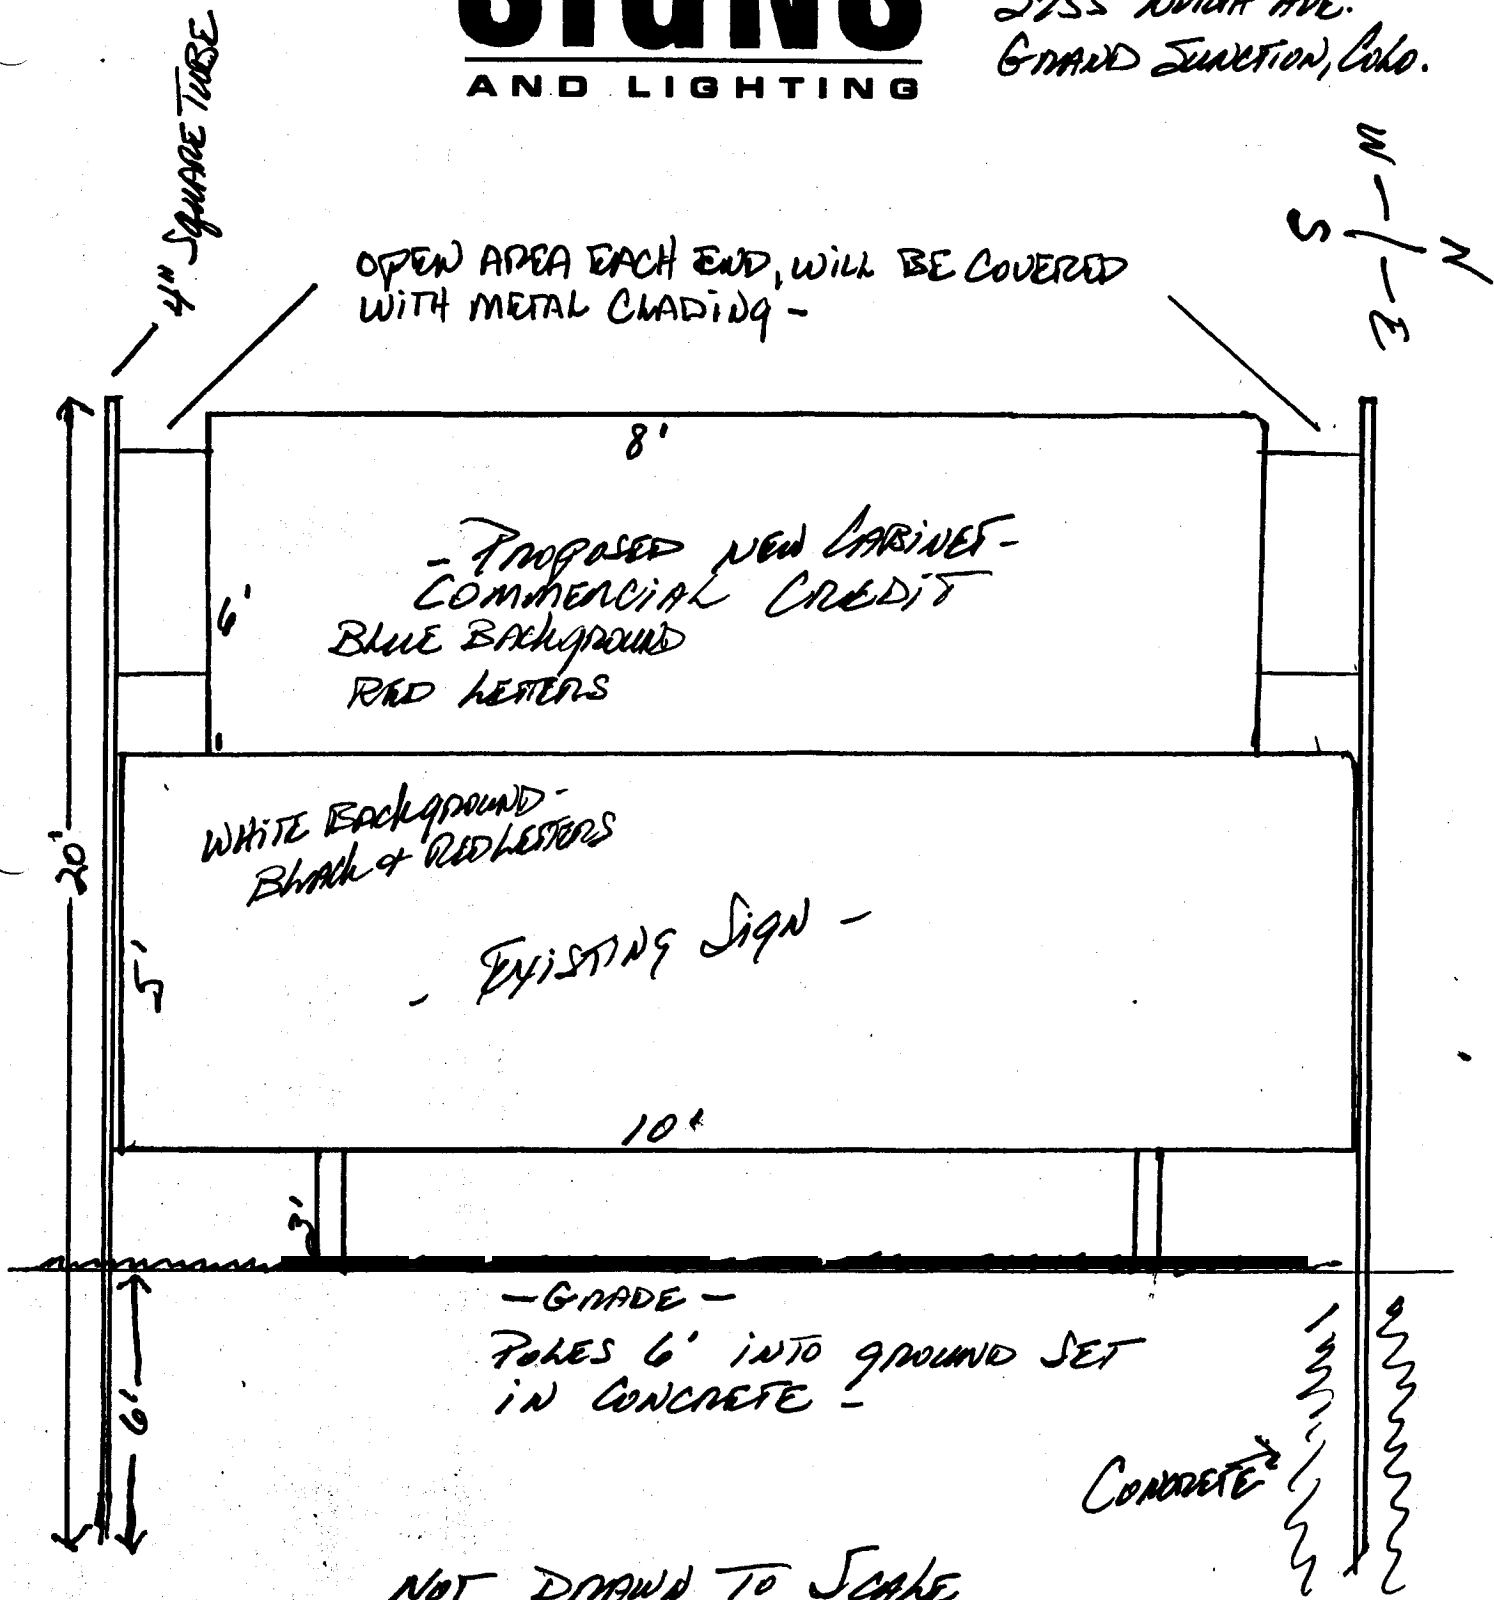 SIGNS
AND LIGHTING
NORTH AVE.
GRAND JUNCTION, COLO.
4" SQUARE TUBE
W
S
N
E
OPEN AREA EACH END, WILL BE COVERED
WITH METAL CLADING -
8'
- PROPOSED NEW CABINET -
COMMERCIAL CREDIT
6'
BLUE BACKGROUND
RED LETTERS
WHITE BACKGROUND -
BLACK & RED LETTERS
20'
5'
- EXISTING SIGN -
10'
3'
- GRADE -
POLES 6' INTO GROUND SET
IN CONCRETE -
6'
CONCRETE
NOT DRAWN TO SCALE